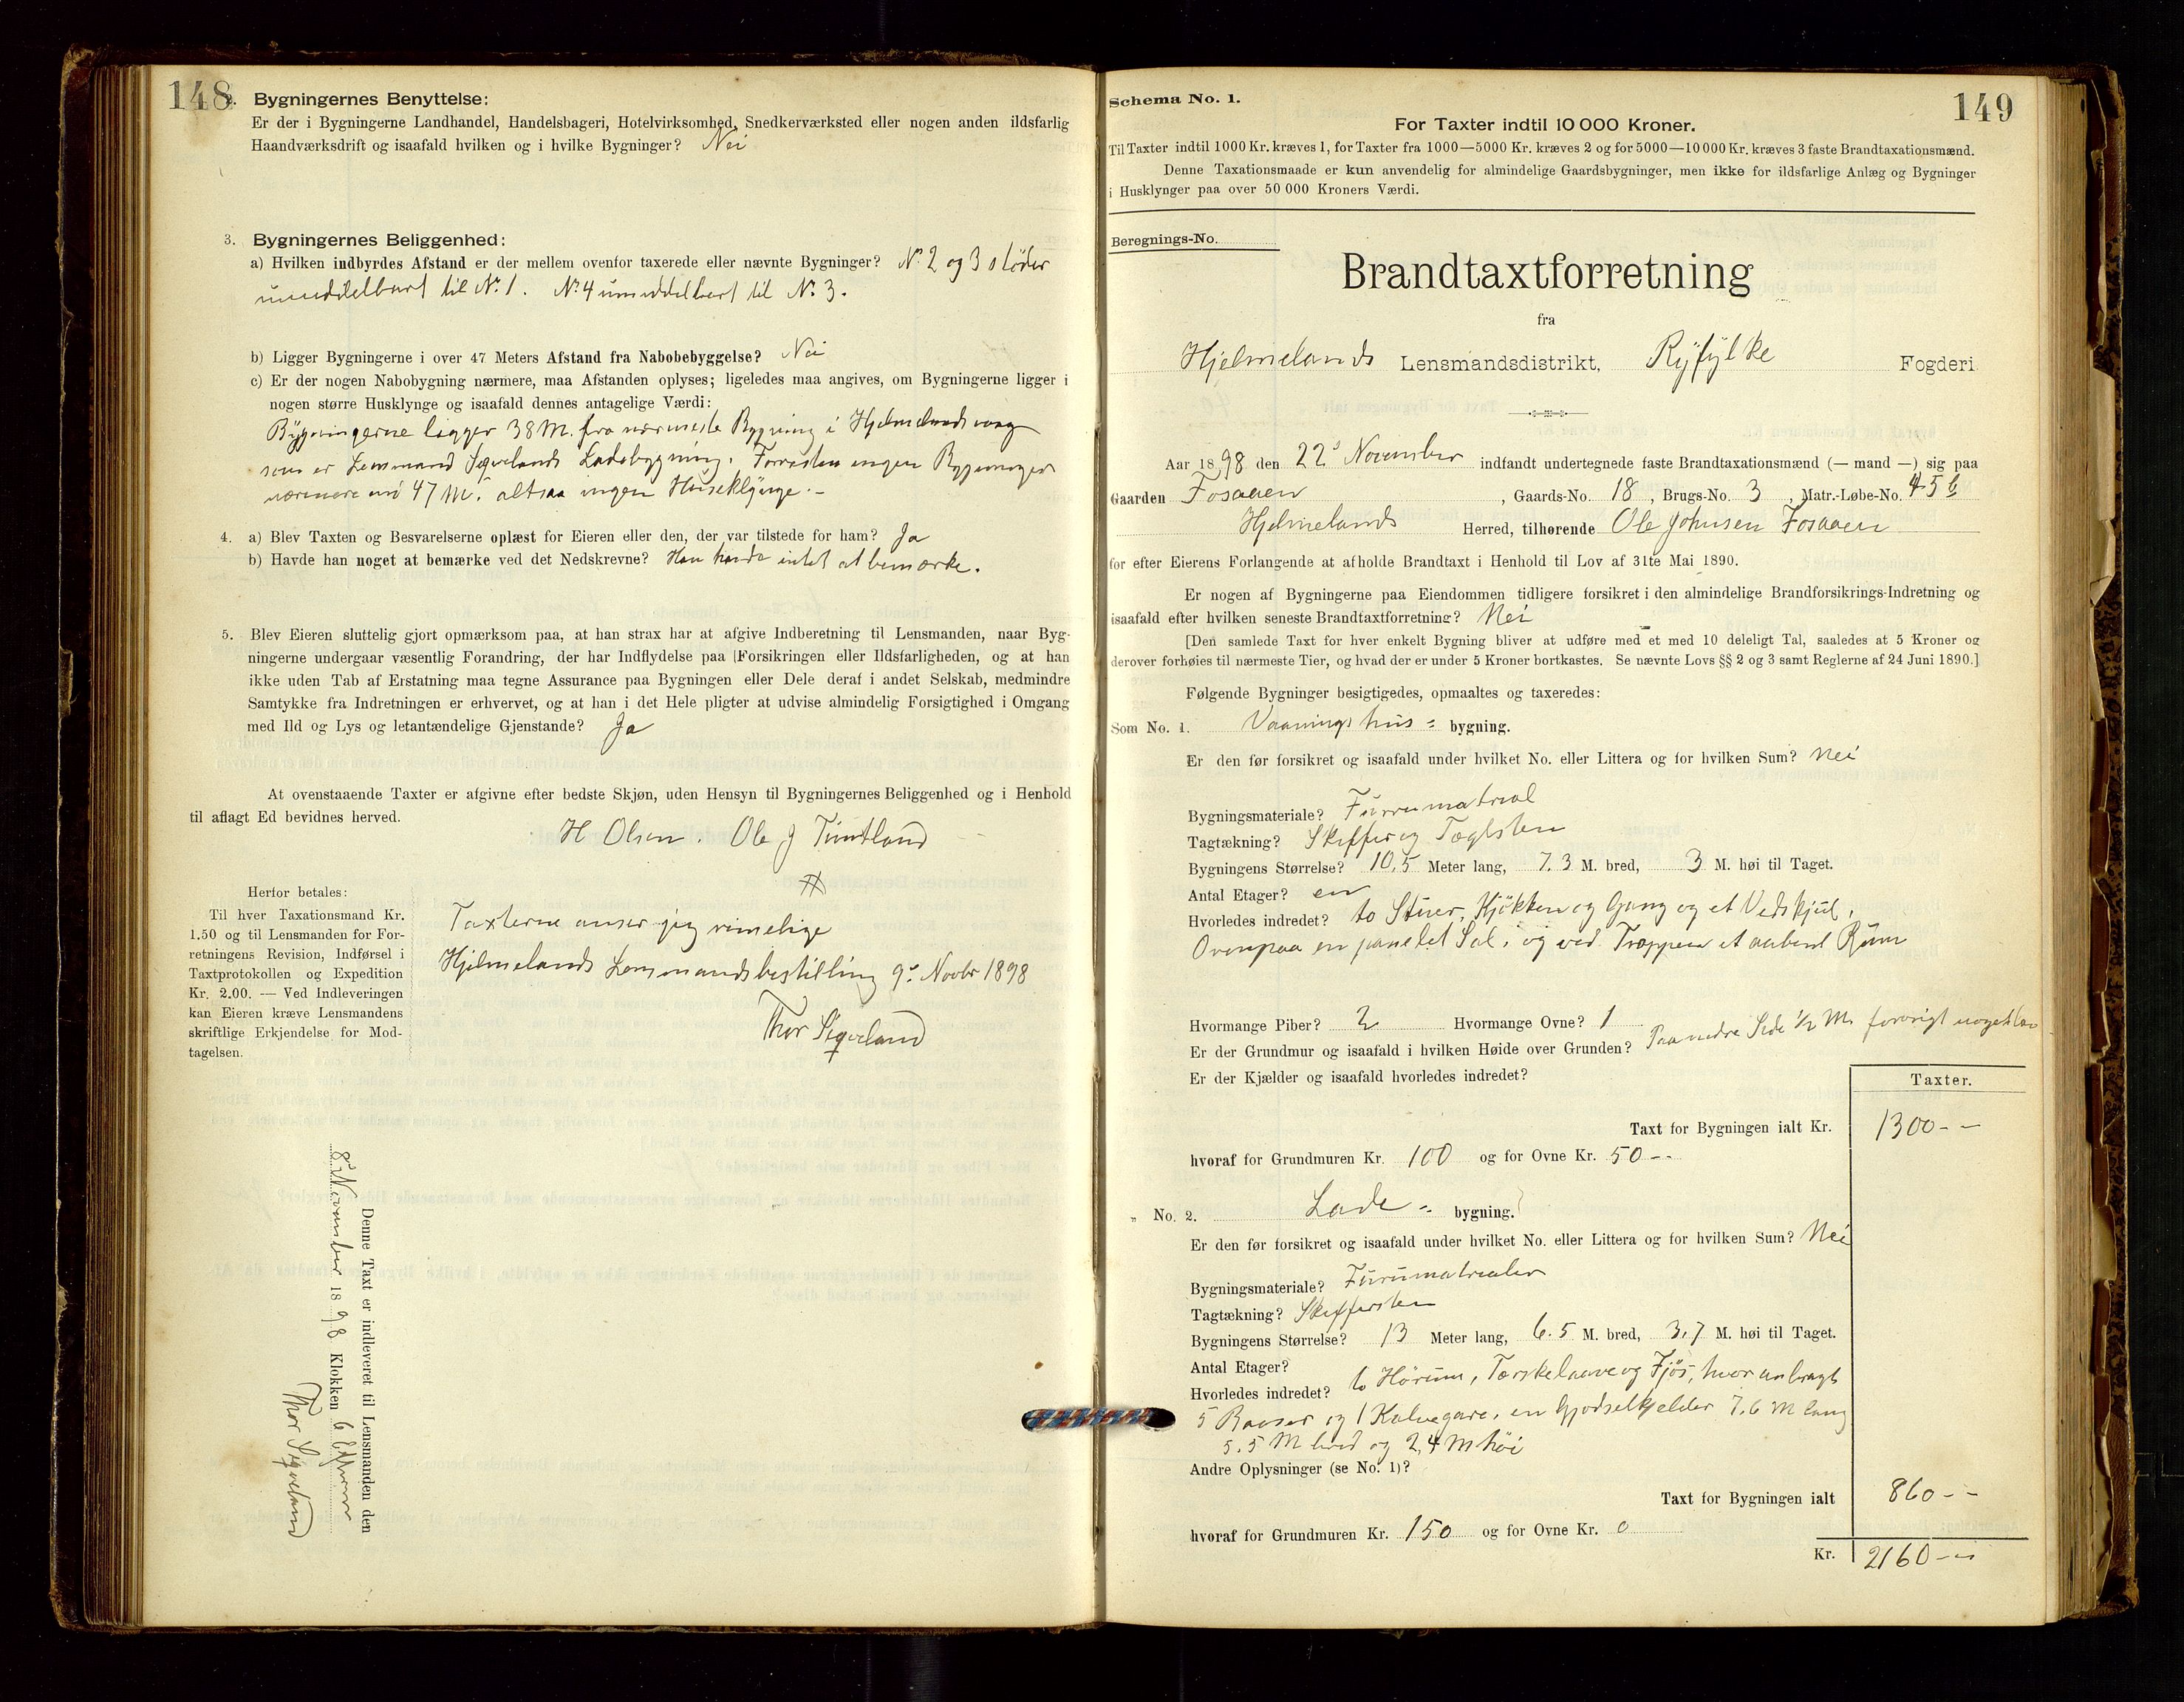 148
2. Bygningernes Benyttelse:
Er der i Bygningerne Landhandel, Handelsbageri, Hotelvirksomhed, Snedkerværksted eller nogen anden ildsfarlig
Haandværksdrift og isaafald hvilken og i hvilke Bygninger? Nei
3. Bygningernes Beliggenhed:
a) Hvilken indbyrdes Afstand er der mellem ovenfor taxerede eller nævnte Bygninger? No 2 og 3 støder
umiddelbart til No 1. No 4 umiddelbart til No 3.
b) Ligger Bygningerne i over 47 Meters Afstand fra Nabobebyggelse? Nei
c) Er der nogen Nabobygning nærmere, maa Afstanden oplyses; ligeledes maa angives, om Bygningerne ligger i
nogen større Husklynge og isaafald dennes antagelige Værdi:
Bygningerne ligger 38 M. fra nærmeste Bygning i Hjelmelandsvaag
som er Lensmand Sigvelands Ladebygning. Forresten ingen Bygninger
nærmere end 47 M. altsaa ingen Huseklynge.-
4. a) Blev Taxten og Besvarelserne oplæst for Eieren eller den, der var tilstede for ham? Ja
b) Havde han noget at bemærke ved det Nedskrevne? Han havde intet at bemærke.
5. Blev Eieren sluttelig gjort opmærksom paa, at han strax har at afgive Indberetning til Lensmanden, naar Byg-
ningerne undergaar væsentlig Forandring, der har Indflydelse paa Forsikringen eller Ildsfarligheden, og at han
ikke uden Tab af Erstatning maa tegne Assurance paa Bygningen eller Dele deraf i andet Selskab, medmindre
Samtykke fra Indretningen er erhvervet, og at han i det Hele pligter at udvise almindelig Forsigtighed i Omgang
med Ild og Lys og letantændelige Gjenstande? Ja
At ovenstaaende Taxter er afgivne efter bedste Skjøn, uden Hensyn til Bygningernes Beliggenhed og i Henhold
til aflagt Ed bevidnes herved.
H Olsen. Ole J Tuntland
Herfor betales:
Til hver Taxationsmand Kr.
1.50 og til Lensmanden for For-
retningens Revision, Indførsel i
Taxtprotokollen og Expedition
Kr. 2.00. — Ved Indleveringen
kan Eieren kræve Lensmandens
skriftlige Erkjendelse for Mod-
tagelsen.
Taxterne anser jeg rimelige
Hjelmelands Lensmandsbestilling 9 Novbr 1898
Thor Sigveland
Denne Taxt er indleveret til Lensmanden den
8 November 1898 Klokken 6 Efterm
Thor Sigveland
Schema No. 1.
149
For Taxter indtil 10 000 Kroner.
Til Taxter indtil 1000 Kr. kræves 1, for Taxter fra 1000—5000 Kr. kræves 2 og for 5000—10 000 Kr. kræves 3 faste Brandtaxationsmænd.
Denne Taxationsmaade er kun anvendelig for almindelige Gaardsbygninger, men ikke for ildsfarlige Anlæg og Bygninger
i Husklynger paa over 50 000 Kroners Værdi.
Beregnings-No.
Brandtaxtforretning
fra
Hjelmelands Lensmandsdistrikt, Ryfylke Fogderi
Aar 1898 den 22 November indfandt undertegnede faste Brandtaxationsmænd (— mand —) sig paa
Gaarden Fosaaen, Gaards-No. 18, Brugs-No. 3, Matr.-Løbe-No. 45 b
Hjelmelands Herred, tilhørende Ole Johnsen Fosaaen
for efter Eierens Forlangende at afholde Brandtaxt i Henhold til Lov af 31te Mai 1890.
Er nogen af Bygningerne paa Eiendommen tidligere forsikret i den almindelige Brandforsikrings-Indretning og
isaafald efter hvilken seneste Brandtaxtforretning? Nei
[Den samlede Taxt for hver enkelt Bygning bliver at udføre med et med 10 deleligt Tal, saaledes at 5 Kroner og
derover forhøies til nærmeste Tier, og hvad der er under 5 Kroner bortkastes. Se nævnte Lovs §§ 2 og 3 samt Reglerne af 24 Juni 1890.]
Følgende Bygninger besigtigedes, opmaaltes og taxeredes:
Som No. 1. Vaaningshus = bygning.
Er den før forsikret og isaafald under hvilket No. eller Littera og for hvilken Sum? Nei
Bygningsmateriale? Furrumatrial
Tagtækning? Skiffer og Taglsten
Bygningens Størrelse? 10,5 Meter lang, 7.3 M. bred, 3 M. høi til Taget.
Antal Etager? en
Hvorledes indredet? to Stuer, Kjøkken og Gang og et Vedskjul,
Ovenpaa en panelet Sal, og ved Trappen et aabent Rum
Hvormange Piber? 2 Hvormange Ovne? 1
Er der Grundmur og isaafald i hvilken Høide over Grunden? Paa nedre Side ½ M. forøvrigt noget lav
Er der Kjælder og isaafald hvorledes indredet?
Taxter.
Taxt for Bygningen ialt Kr. 1300--
hvoraf for Grundmuren Kr. 100 og for Ovne Kr. 50--
„ No. 2. Lade = bygning.
Er den før forsikret og isaafald under hvilket No. eller Littera og for hvilken Sum? Nei
Bygningsmateriale? Furumatrialer
Tagtækning? Skiffersten
Bygningens Størrelse? 13 Meter lang, 6.5 M. bred, 3,7 M. høi til Taget.
Antal Etager?
Hvorledes indredet? to Hørum, Tærskelaave og Fjøs, hvor anbragt
5 Baaser og 1 Kalvegare, en Gjødselkjelder 7.6 M lang
5.5 M bred og 2,4 M høi
Andre Oplysninger (se No. 1)?
Taxt for Bygningen ialt 860--
hvoraf for Grundmuren Kr. 150 og for Ovne Kr. 0
Kr. 2160--